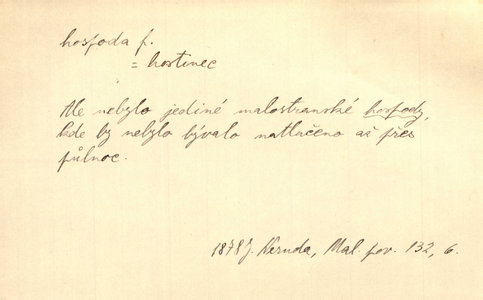 hospoda f.
= hostinec
Ale nebylo jediné malostranské hospody,
kde by nebylo bývalo natlačeno až přes
půlnoc.
1878 J. Neruda, Mal. pov. 132, 6.